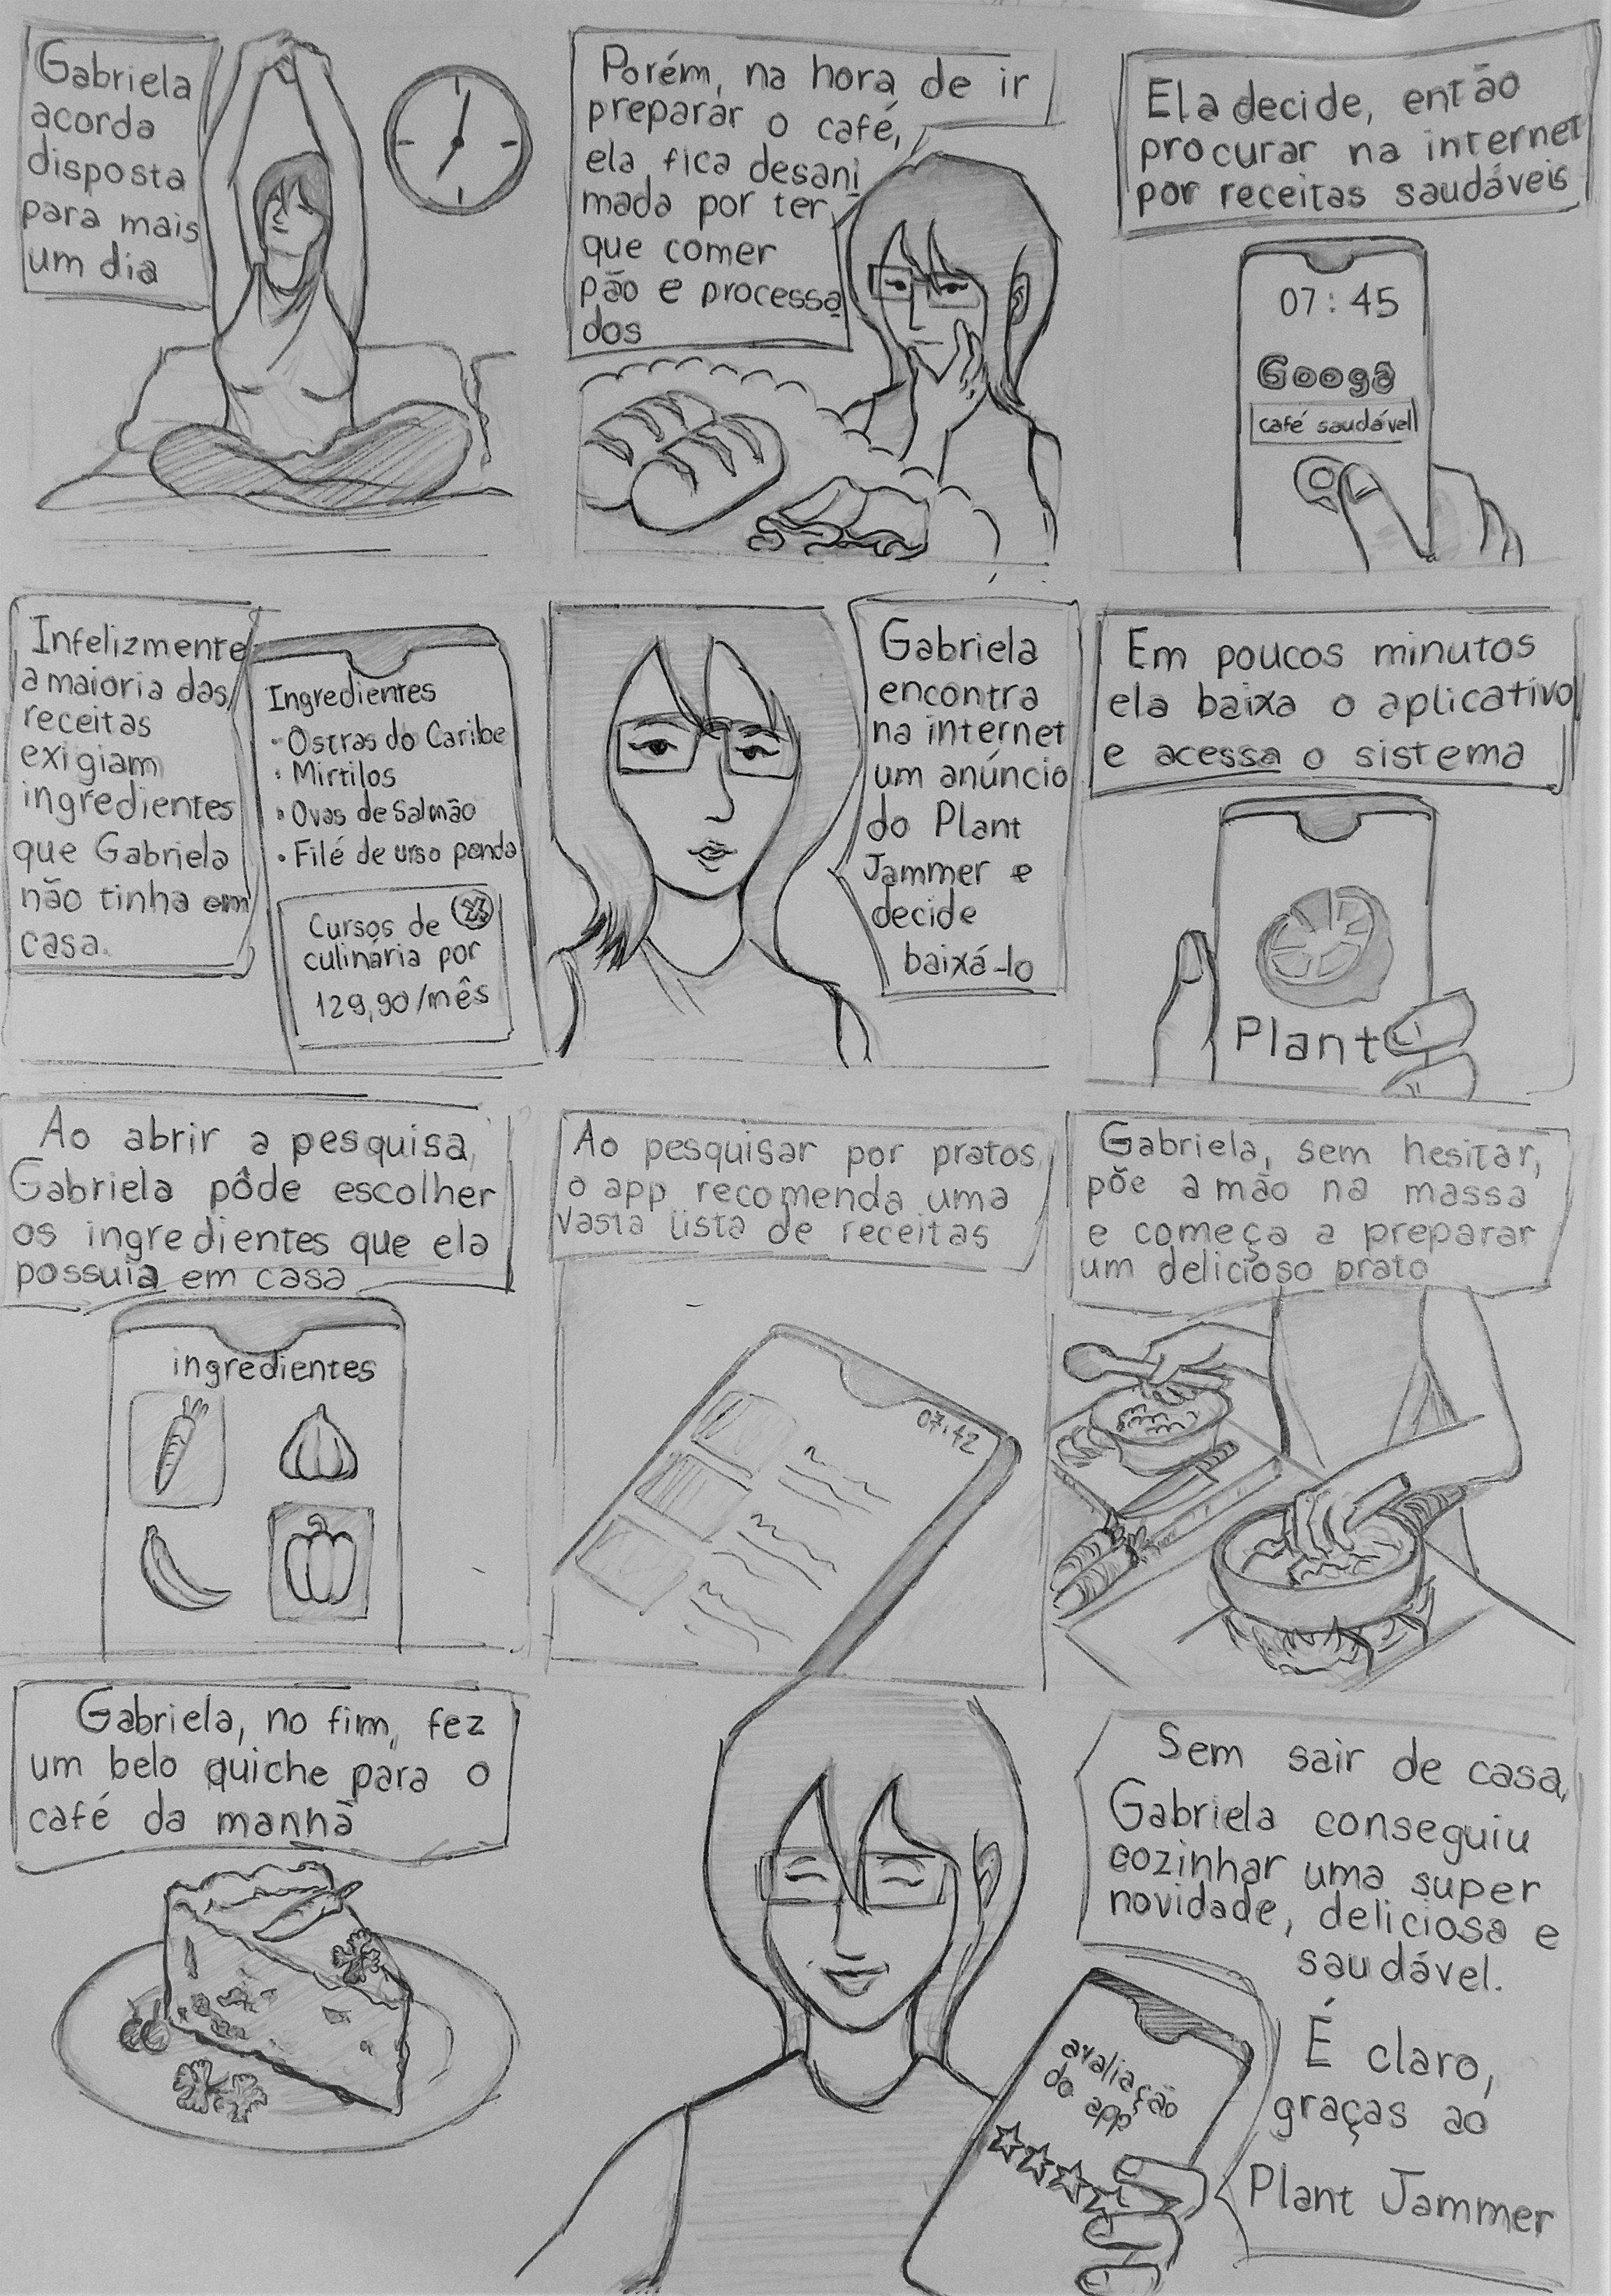 Gabriela
acorda
disposta
para mais
um dia
Porém, na hora de ir
preparar o café,
ela fica desani
mada por ter
que comer
pão e processa
dos
Ela decide, então
procurar na internet
por receitas saudáveis
07:45
café saudável
Infelizmente
a maioria das
receitas
exigiam
ingredientes
que Gabriela
não tinha em
casa.
Ingredientes
· Ostras do Caribe
· Mirtilos
· Ovas de Salmão
· Filé de urso panda
Cursos de
culinária por
129,90/mês
Gabriela
encontra
na internet
um anúncio
do Plant
Jammer e
decide
baixá-lo
Em poucos minutos
ela baixa o aplicativo
e acessa o sistema
Plant
Ao abrir a pesquisa,
Gabriela pôde escolher
os ingredientes que ela
possuia em casa
ingredientes
Ao pesquisar por pratos,
o app recomenda uma
vasta lista de receitas
07:42
Gabriela, sem hesitar,
põe a mão na massa
e começa a preparar
um delicioso prato
Gabriela, no fim, fez
um belo quiche para o
café da manhã
Sem sair de casa,
Gabriela conseguiu
cozinhar uma super
novidade, deliciosa e
saudável.
É claro,
graças ao
Plant Jammer
avaliação
do app